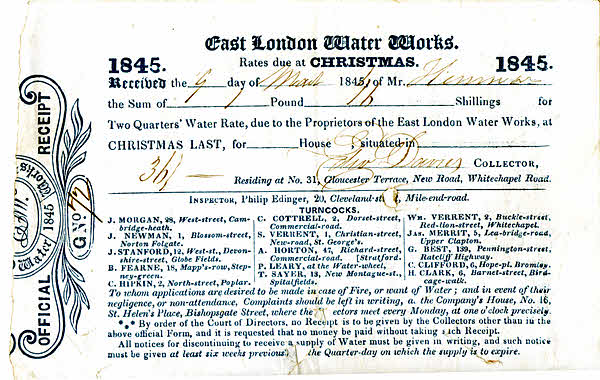 East London Water Works.
1845. Rates due at CHRISTMAS. 1845.
Received the 9 day of 1845/6 of Mr.
the Sum of Pound Shillings for
Two Quarters' Water Rate, due to the Proprietors of the East London Water Works, at
CHRISTMAS LAST, for House situated in
36/- Geo Davies COLLECTOR,
Residing at No. 31, Gloucester Terrace, New Road, Whitechapel Road.
INSPECTOR, Philip Edinger, 20, Cleveland-st Mile-end-road.
TURNCOCKS.
J. MORGAN, 28, West-street, Cam-
bridge-heath.
J. NEWMAN, 1, Blossom-street,
Norton Folgate.
J. STANFORD, 12, West-st., Devon-
shire-street, Globe Fields.
B. FEARNE, 18, Mapp's-row, Step-
ney-green.
C. HIPKIN, 2, North-street, Poplar.
C. COTTRELL, 2, Dorset-street,
Commercial-road.
S. VERRENT, 1, Christian-street,
New-road, St. George's.
A. HORTON, 47, Richard-street,
Commercial-road. [Stratford.
P. LEARY, at the Water-wheel,
T. SAYER, 13, New Montague-st.,
Spitalfields.
WM. VERRENT, 2, Buckle-street,
Red-lion-street, Whitechapel.
JAS. MERRIT, 5, Lea-bridge-road,
Upper Clapton.
G. BEST, 10, Pennington-street,
Ratcliff Highway.
C. CLIFFORD, 6, Hope-pl. Bromley.
H. CLARK, 6, Barnet-street, Bird-
cage-walk.
To whom applications are desired to be made in case of Fire, or want of Water; and in event of their
negligence, or non-attendance. Complaints should be left in writing, at the Company's House, No. 16,
St. Helen's Place, Bishopsgate Street, where the ectors meet every Monday, at one o'clock precisely.
*** By order of the Court of Directors, no Receipt is to be given by the Collectors other than in the
above official Form, and it is requested that no money be paid without taking such Receipt.
All notices for discontinuing to receive a supply of Water must be given in writing, and such notice
must be given at least six weeks previous the Quarter-day on which the supply is to expire.
OFFICIAL RECEIPT
Water 1845 Works
G. No. 72